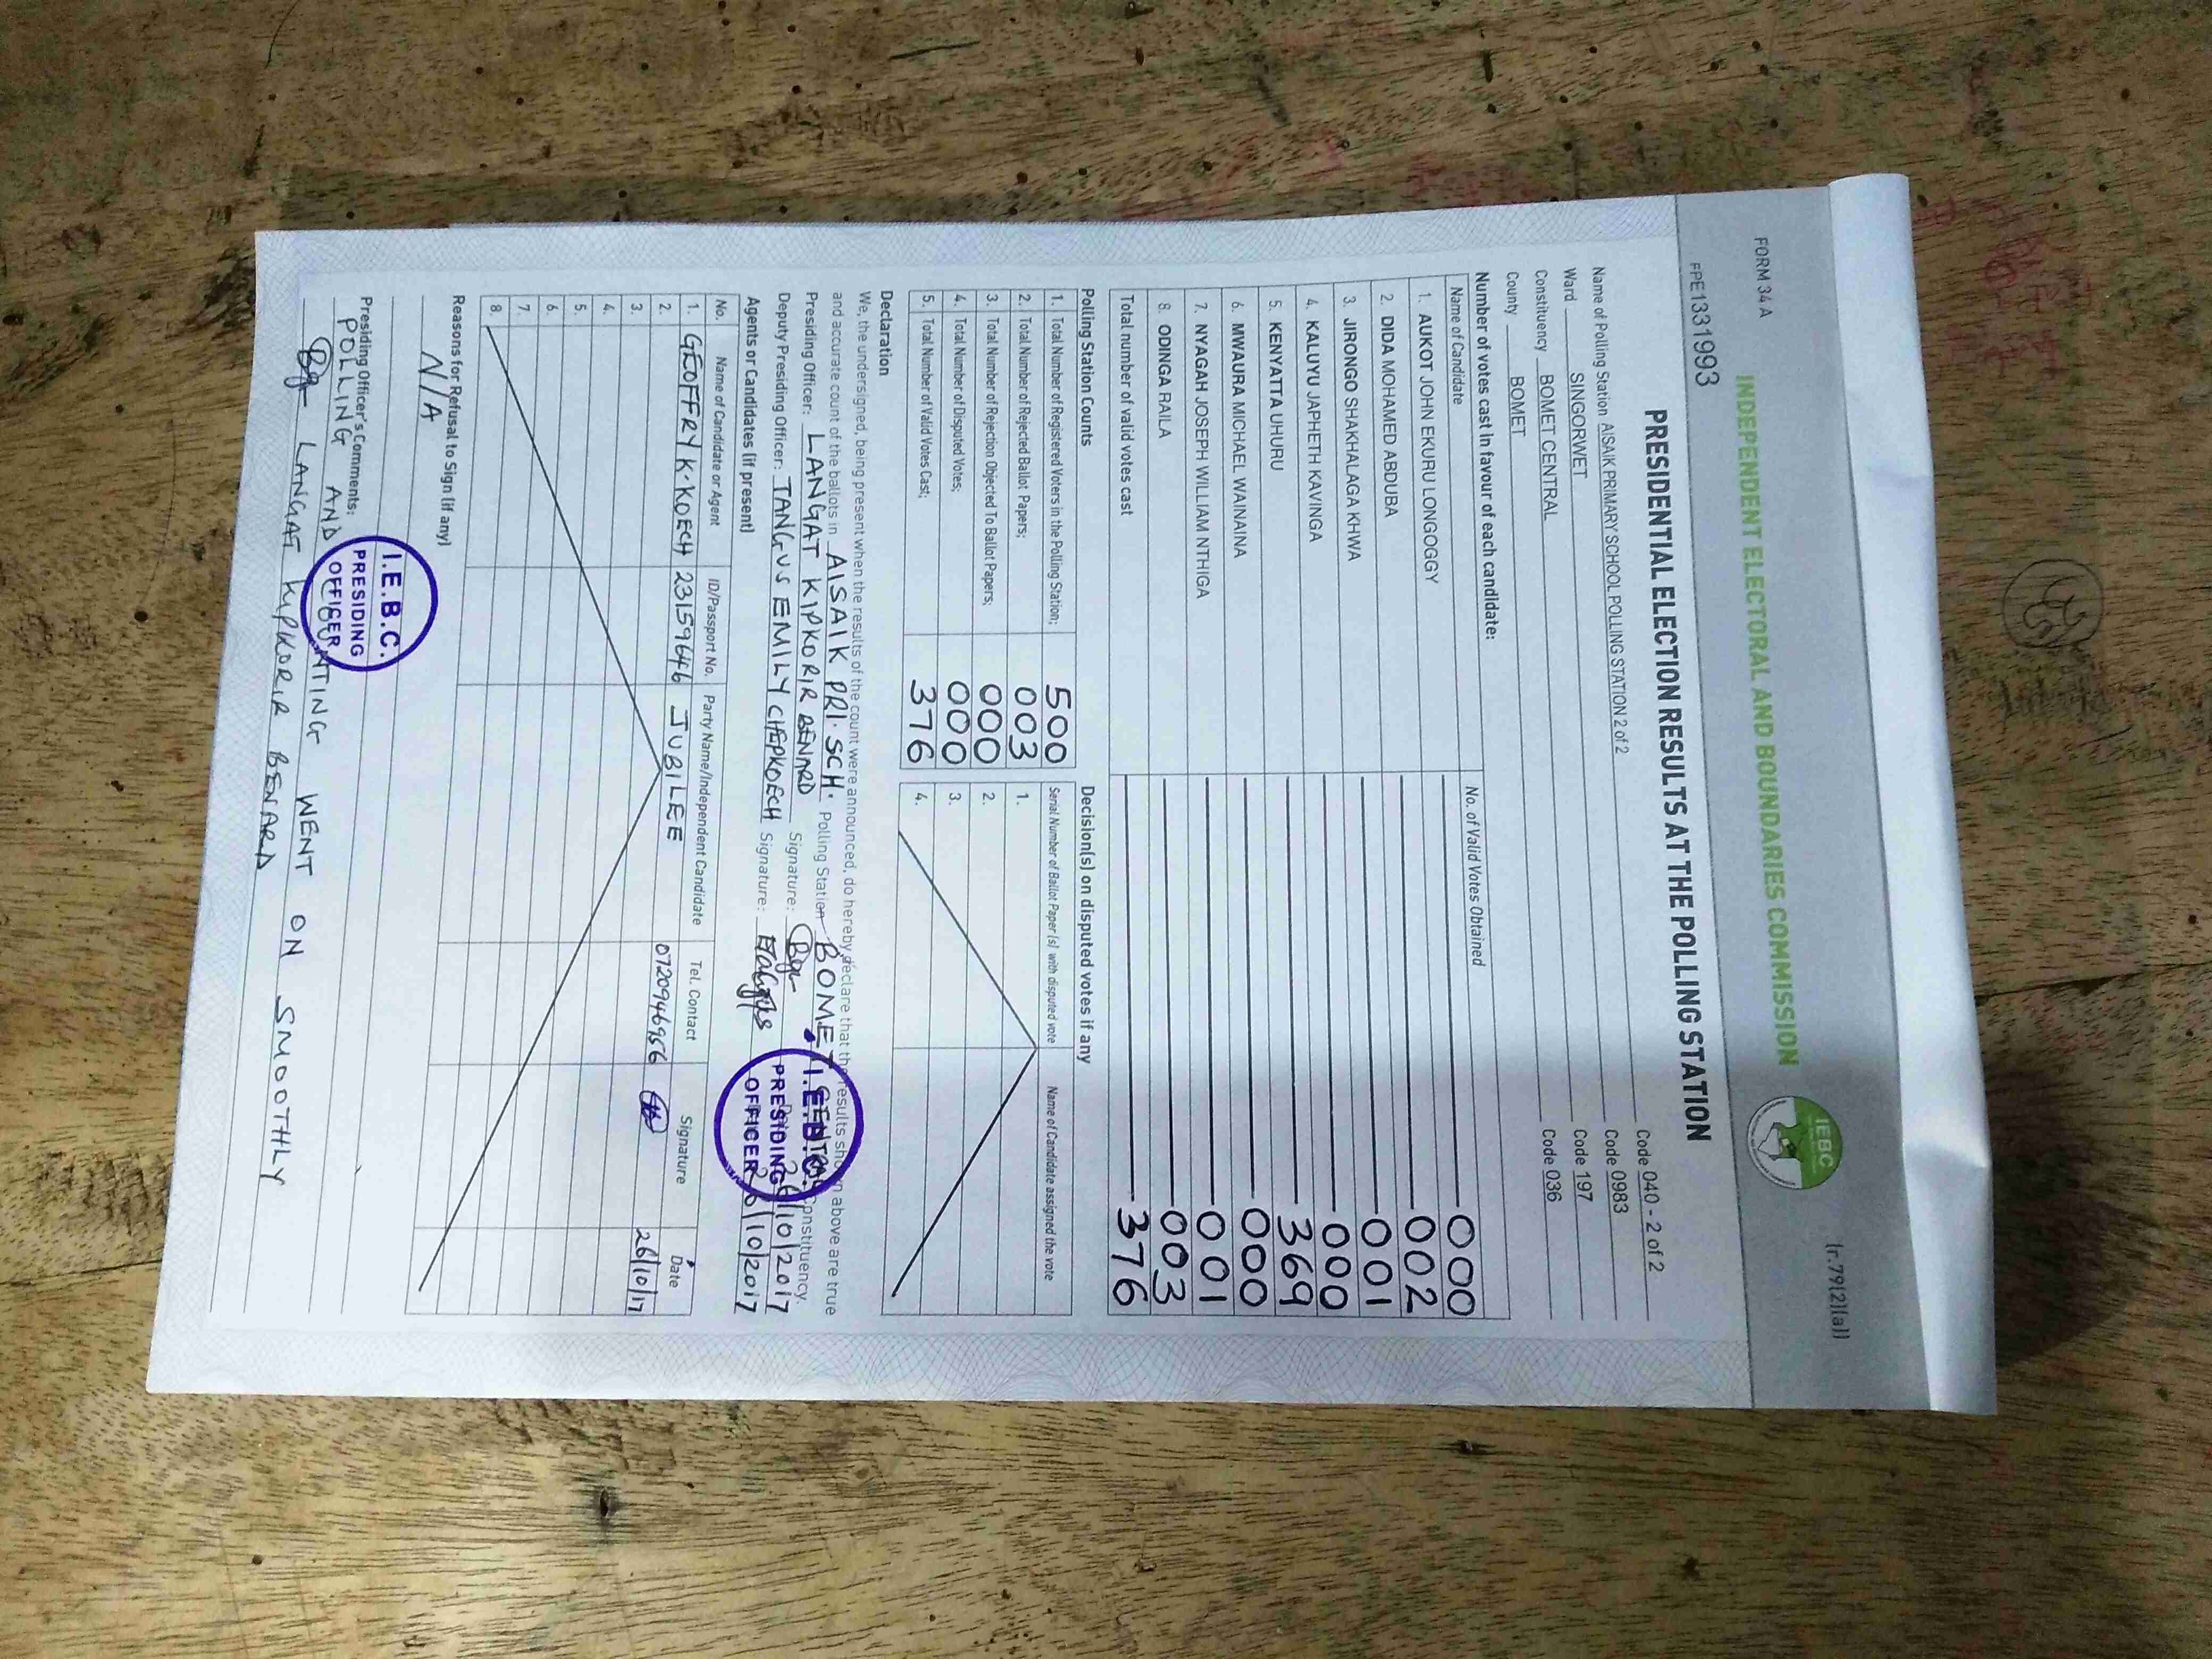 FORM 34 A
(r.79(2)(a))
INDEPENDENT ELECTORAL AND BOUNDARIES COMMISSION
IEBC
FPE1331993
PRESIDENTIAL ELECTION RESULTS AT THE POLLING STATION
Name of Polling Station AISAIK PRIMARY SCHOOL POLLING STATION 2 of 2 Code 040 - 2 of 2
Ward SINGORWET Code 0983
Constituency BOMET CENTRAL Code 197
County BOMET Code 036
Number of votes cast in favour of each candidate:
Name of Candidate No. of Valid Votes Obtained
1. AUKOT JOHN EKURU LONGOGGY 000
2. DIDA MOHAMED ABDUBA 002
3. JIRONGO SHAKHALAGA KHWA 001
4. KALUYU JAPHETH KAVINGA 000
5. KENYATTA UHURU 369
6. MWAURA MICHAEL WAINAINA 000
7. NYAGAH JOSEPH WILLIAM NTHIGA 001
8. ODINGA RAILA 003
Total number of valid votes cast 376
Polling Station Counts
1. Total Number of Registered Voters in the Polling Station; 500
2. Total Number of Rejected Ballot Papers; 003
3. Total Number of Rejection Objected To Ballot Papers; 000
4. Total Number of Disputed Votes; 000
5. Total Number of Valid Votes Cast; 376
Decision(s) on disputed votes if any
Serial Number of Ballot Paper (s) with disputed vote Name of Candidate assigned the vote
1.
2.
3.
4.
Declaration
We, the undersigned, being present when the results of the count were announced, do hereby declare that the results shown above are true
and accurate count of the ballots in AISAIK PRI. SCH. Polling Station BOMET CENTRAL Constituency.
Presiding Officer: LANGAT KIPKORIR BENARD Signature: 26/10/2017
Deputy Presiding Officer: TANGUS EMILY CHEPKOECH Signature: 26/10/2017
I.E.B.C.
PRESIDING
OFFICER
Agents or Candidates (if present)
No. Name of Candidate or Agent ID/Passport No. Party Name/Independent Candidate Tel. Contact Signature Date
1. GEOFFRY K. KOECH 23159646 JUBILEE 0720946956 26/10/17
2.
3.
4.
5.
6.
7.
8.
Reasons for Refusal to Sign (if any)
N/A
I.E.B.C.
PRESIDING
OFFICER
Presiding Officer's Comments:
POLLING AND COUNTING WENT ON SMOOTHLY
LANGAT KIPKORIR BENARD